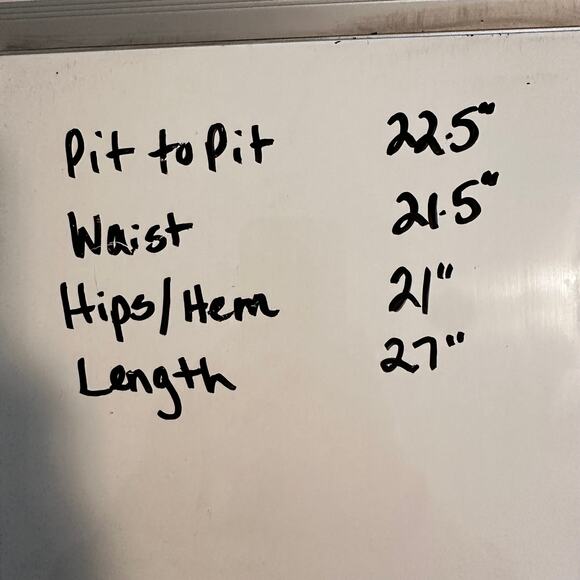 Pit to Pit 22.5"
Waist 21.5"
Hips/Hem 21"
Length 27"